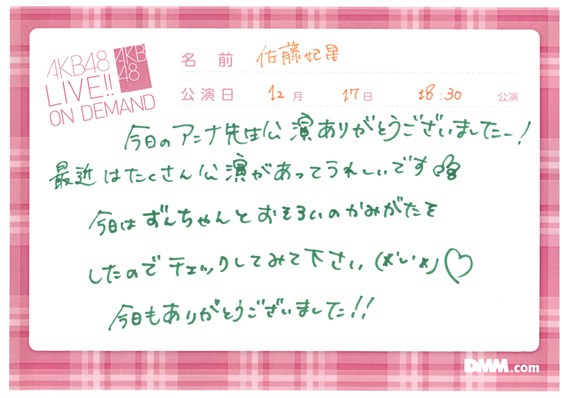 AKB48
LIVE!!
ON DEMAND
AKB
48
名前 佐藤妃星
公演日 12月 17日 18:30 公演
今日のアンナ先生公演ありがとうございましたー!
最近はたくさん公演があってうれしいです
今日はずんちゃんとおそろいのかみがたを
したのでチェックしてみて下さい
今日もありがとうございました!!
DMM.com